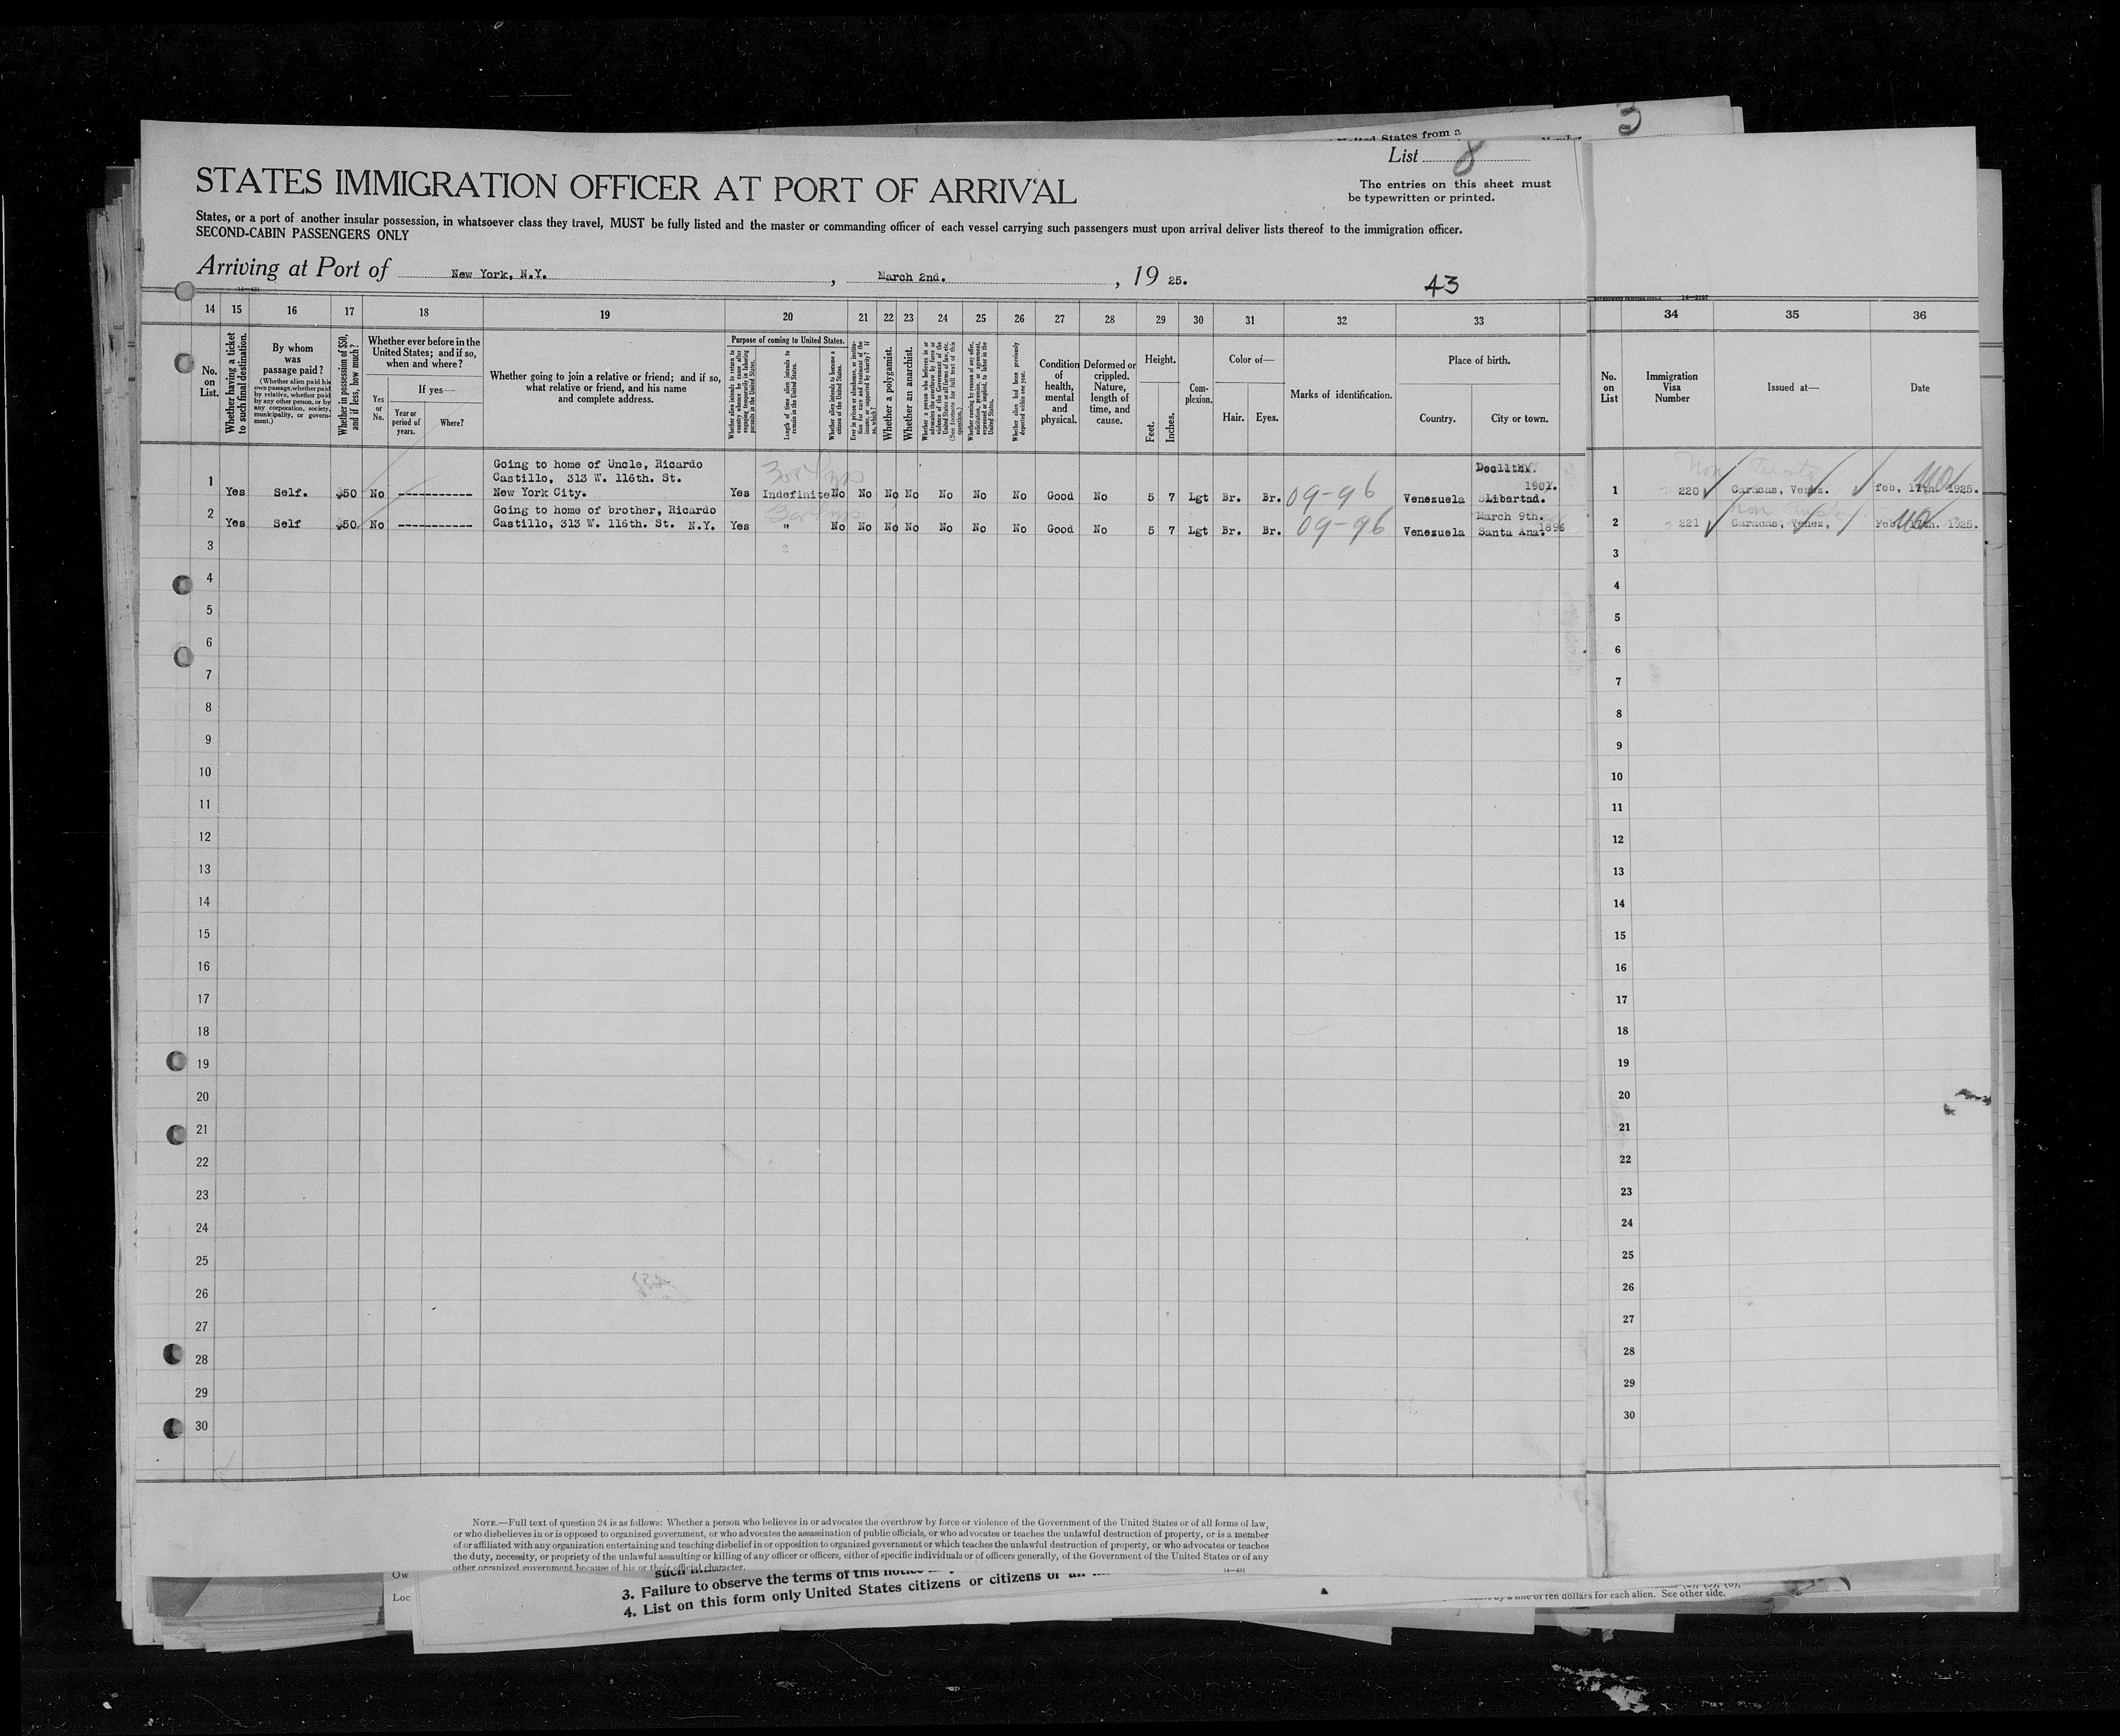 United States from a
3
List 8
The entries on this sheet must
be typewritten or printed.
STATES IMMIGRATION OFFICER AT PORT OF ARRIVAL
States, or a port of another insular possession, in whatsoever class they travel, MUST be fully listed and the master or commanding officer of each vessel carrying such passengers must upon arrival deliver lists thereof to the immigration officer.
SECOND-CABIN PASSENGERS ONLY
Arriving at Port of New York, N.Y., March 2nd., 19 25.
43
14 15 16 17 18 19 20 21 22 23 24 25 26 27 28 29 30 31 32 33 34 35 36
No. on List.
Whether having a ticket to such final destination.
By whom was passage paid?
(Whether alien paid his own passage, whether paid by relative, whether paid by any other person, or by any corporation, society, municipality, or government.)
Whether in possession of $50, and if less, how much?
Whether ever before in the United States; and if so, when and where?
Yes or No.
If yes—
Year or period of years.
Where?
Whether going to join a relative or friend; and if so, what relative or friend, and his name and complete address.
Purpose of coming to United States.
Whether alien intends to return to country whence he came after engaging temporarily in laboring pursuits in the United States.
Length of time alien intends to remain in the United States.
Whether alien intends to become a citizen of the United States.
Whether a polygamist.
Whether an anarchist.
Whether alien had been previously deported within one year.
Condition of health, mental and physical.
Deformed or crippled. Nature, length of time, and cause.
Height.
Feet.
Inches.
Complexion.
Color of—
Hair.
Eyes.
Marks of identification.
Place of birth.
Country.
City or town.
No. on List
Immigration Visa Number
Issued at—
Date
Going to home of Uncle, Ricardo
Castillo, 313 W. 116th. St.
New York City.
1 Yes Self. $50 No ----------- Yes Indefinite No No No No No No No Good No 5 7 Lgt Br. Br. 09-96 Venezuela Libertad. 1 220 Caracas, Venez. feb, 17th. 1925.
Going to home of brother, Ricardo
Castillo, 313 W. 116th. St. N.Y.
March 9th. 1896
2 Yes Self $50 No ----------- Yes " No No No No No No No Good No 5 7 Lgt Br. Br. 09-96 Venezuela Santa Ana. 2 221 Caracas, Venez, Feb 17th. 1925.
3 3
4 4
5 5
6 6
7 7
8 8
9 9
10 10
11 11
12 12
13 13
14 14
15 15
16 16
17 17
18 18
19 19
20 20
21 21
22 22
23 23
24 24
25 25
26 26
27 27
28 28
29 29
30 30
NOTE.—Full text of question 24 is as follows: Whether a person who believes in or advocates the overthrow by force or violence of the Government of the United States or of all forms of law,
or who disbelieves in or is opposed to organized government, or who advocates the assassination of public officials, or who advocates or teaches the unlawful destruction of property, or is a member
of or affiliated with any organization entertaining and teaching disbelief in or opposition to organized government or which teaches the unlawful destruction of property, or who advocates or teaches
the duty, necessity, or propriety of the unlawful assaulting or killing of any officer or officers, either of specific individuals or of officers generally, of the Government of the United States or of any
other organized government because of his or their official character.
Ow
Loc
3. Failure to observe the terms of this notice
4. List on this form only United States citizens or citizens of
of ten dollars for each alien. See other side.